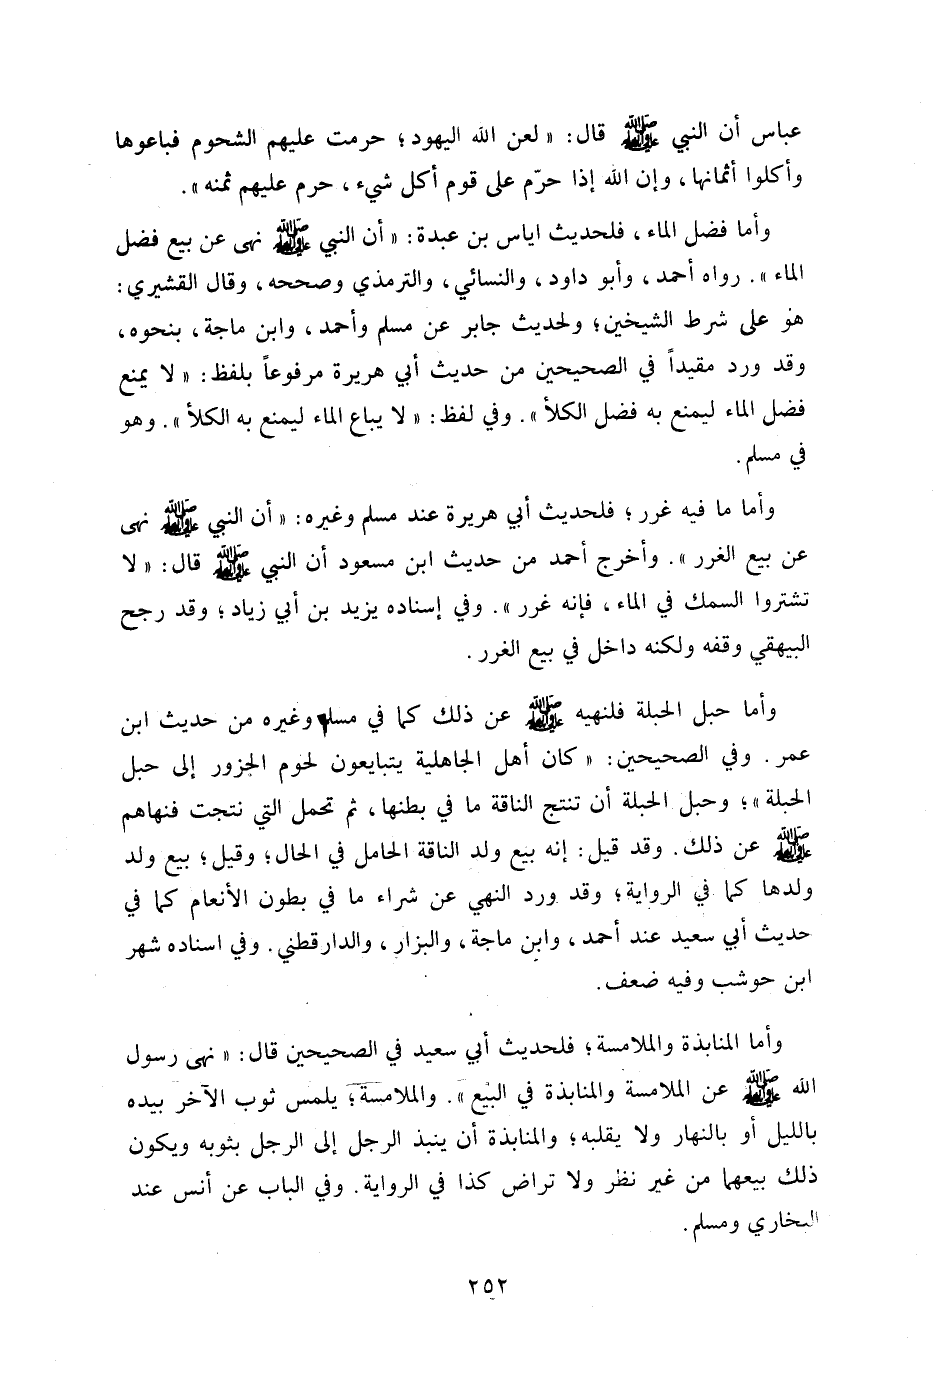 عباس أن النبي ﷺ قال: « لعن الله اليهود؛ حرمت عليهم الشحوم فباعوها
وأكلوا أثمانها، وإن الله إذا حرّم على قوم أكل شيء، حرم عليهم ثمنه ».
وأما فضل الماء، فلحديث اياس بن عبدة: « أن النبي ﷺ نهى عن بيع فضل
الماء ». رواه أحمد، وأبو داود، والنسائي، والترمذي وصححه، وقال القشيري:
هو على شرط الشيخين؛ ولحديث جابر عن مسلم وأحمد، وابن ماجة، بنحوه،
وقد ورد مقيداً في الصحيحين من حديث أبي هريرة مرفوعاً بلفظ: « لا يمنع
فضل الماء ليمنع به فضل الكلأ ». وفي لفظ: « لا يباع الماء ليمنع به الكلأ ». وهو
في مسلم.
وأما ما فيه غرر؛ فلحديث أبي هريرة عند مسلم وغيره: « أن النبي ﷺ نهى
عن بيع الغرر ». وأخرج أحمد من حديث ابن مسعود أن النبي ﷺ قال: « لا
تشتروا السمك في الماء، فإنه غرر ». وفي إسناده يزيد بن أبي زياد؛ وقد رجح
البيهقي وقفه ولكنه داخل في بيع الغرر.
وأما حبل الحبلة فلنهيه ﷺ عن ذلك كما في مسلم وغيره من حديث ابن
عمر. وفي الصحيحين: « كان أهل الجاهلية يتبايعون لحوم الجزور إلى حبل
الحبلة »؛ وحبل الحبلة أن تنتج الناقة ما في بطنها، ثم تحمل التي نتجت فنهاهم
ﷺ عن ذلك. وقد قيل: إنه بيع ولد الناقة الحامل في الحال؛ وقيل؛ بيع ولد
ولدها كما في الرواية؛ وقد ورد النهي عن شراء ما في بطون الأنعام كما في
حديث أبي سعيد عند أحمد، وابن ماجة، والبزار، والدارقطني. وفي اسناده شهر
ابن حوشب وفيه ضعف.
وأما المنابذة والملامسة؛ فلحديث أبي سعيد في الصحيحين قال: « نهى رسول
الله ﷺ عن الملامسة والمنابذة في البيع ». والملامسة؛ يلمس ثوب الآخر بيده
بالليل أو بالنهار ولا يقلبه؛ والمنابذة أن ينبذ الرجل إلى الرجل بثوبه ويكون
ذلك بيعهما من غير نظر ولا تراض كذا في الرواية. وفي الباب عن أنس عند
البخاري ومسلم.
٢٥٢